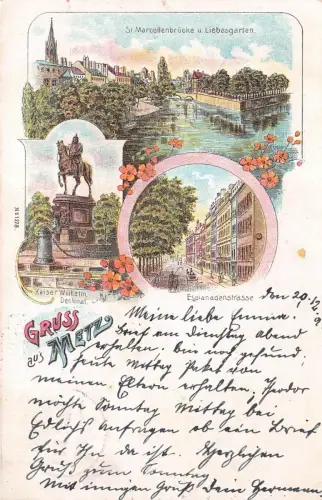 St. Marcellenbrücke u. Liebesgarten.
Kaiser Wilhelm
Denkmal.
Esplanadenstrasse
GRUSS
aus METZ
den 20.
Meine liebe Emma!
Brief am Dienstag abend
erhalten, bin noch gesund,
heute Mittag Paket von
meinen Eltern erhalten, Theodor
möchte Sonntag Mittag bei
anfragen ob ein Brief
für Ihn da ist. Herzlichen
Gruß zum Sonntag
Mit innigem Gruß dein Hermann